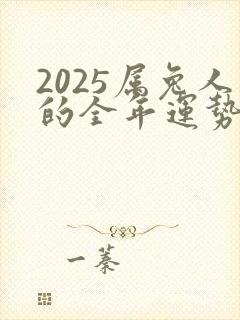 2025属兔人
的全年運勢
一蓁